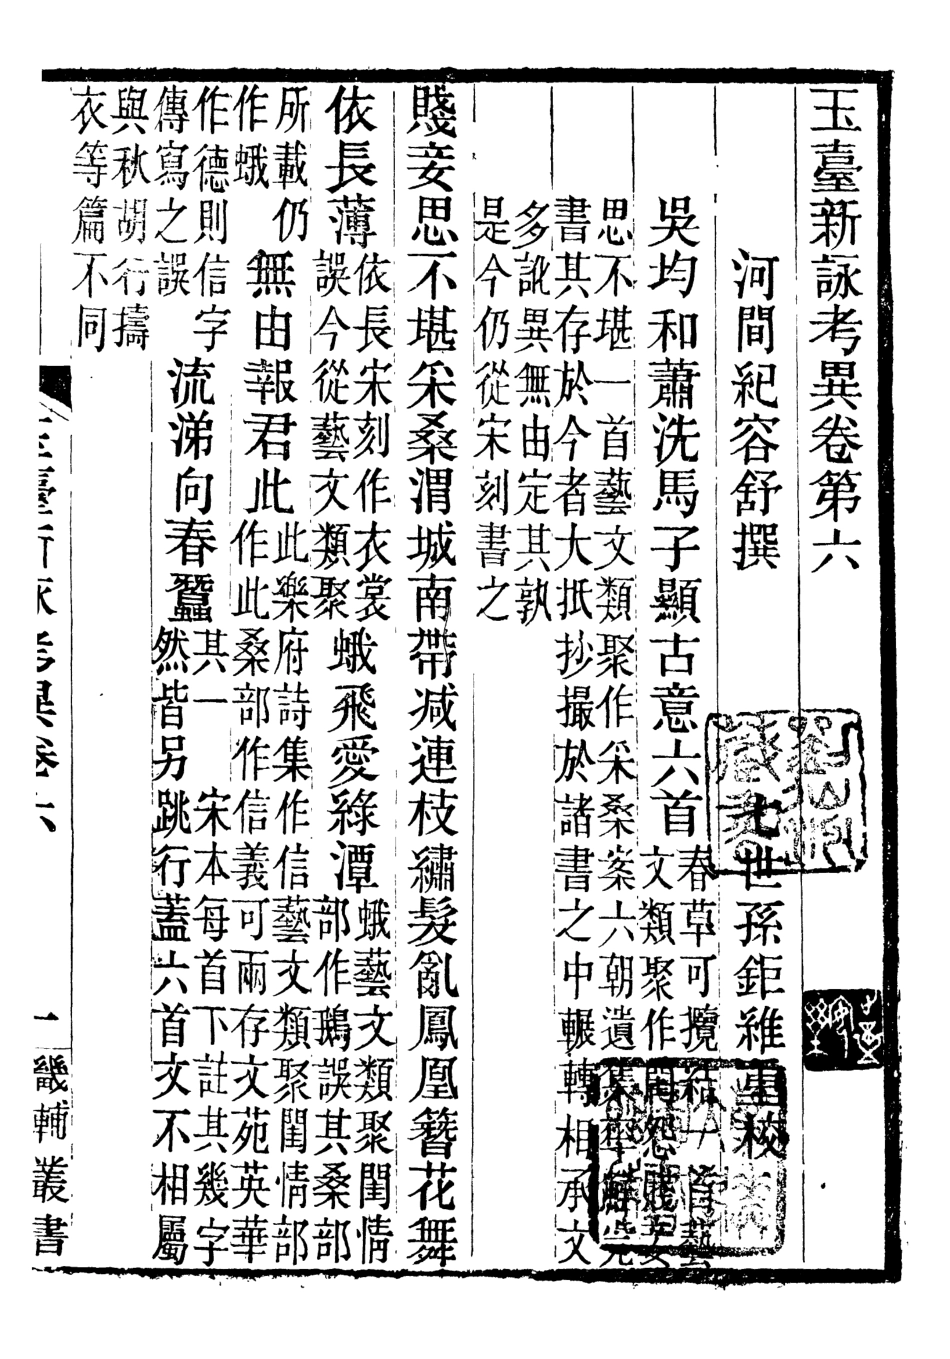 玉臺新詠考異卷第六
河間紀容舒撰　七世孫鉅維重校
吳均和蕭洗馬子顯古意六首
春草可攬結一首藝
文類聚作閨怨賤妾
思不堪一首藝文類聚作采桑案六朝遺集率鮮完
書其存於今者大抵抄撮於諸書之中輾轉相承文
多訛異無由定其孰
是今仍從宋刻書之
賤妾思不堪采桑渭城南帶減連枝繡髮亂鳳凰簪花舞
依長薄
依長宋刻作衣裳
誤今從藝文類聚
蛾飛愛綠潭
蛾藝文類聚閨情
部作鵝誤其桑部
所載仍
作蛾
無由報君此
此樂府詩集作信藝文類聚閨情部
作此桑部作信義可兩存文苑英華
作德則信字
傳寫之誤
流涕向春蠶
其一　宋本每首下註其幾字
然皆另跳行蓋六首文不相屬
與秋胡行擣
衣等篇不同
玉臺新詠考異卷六　一　畿輔叢書